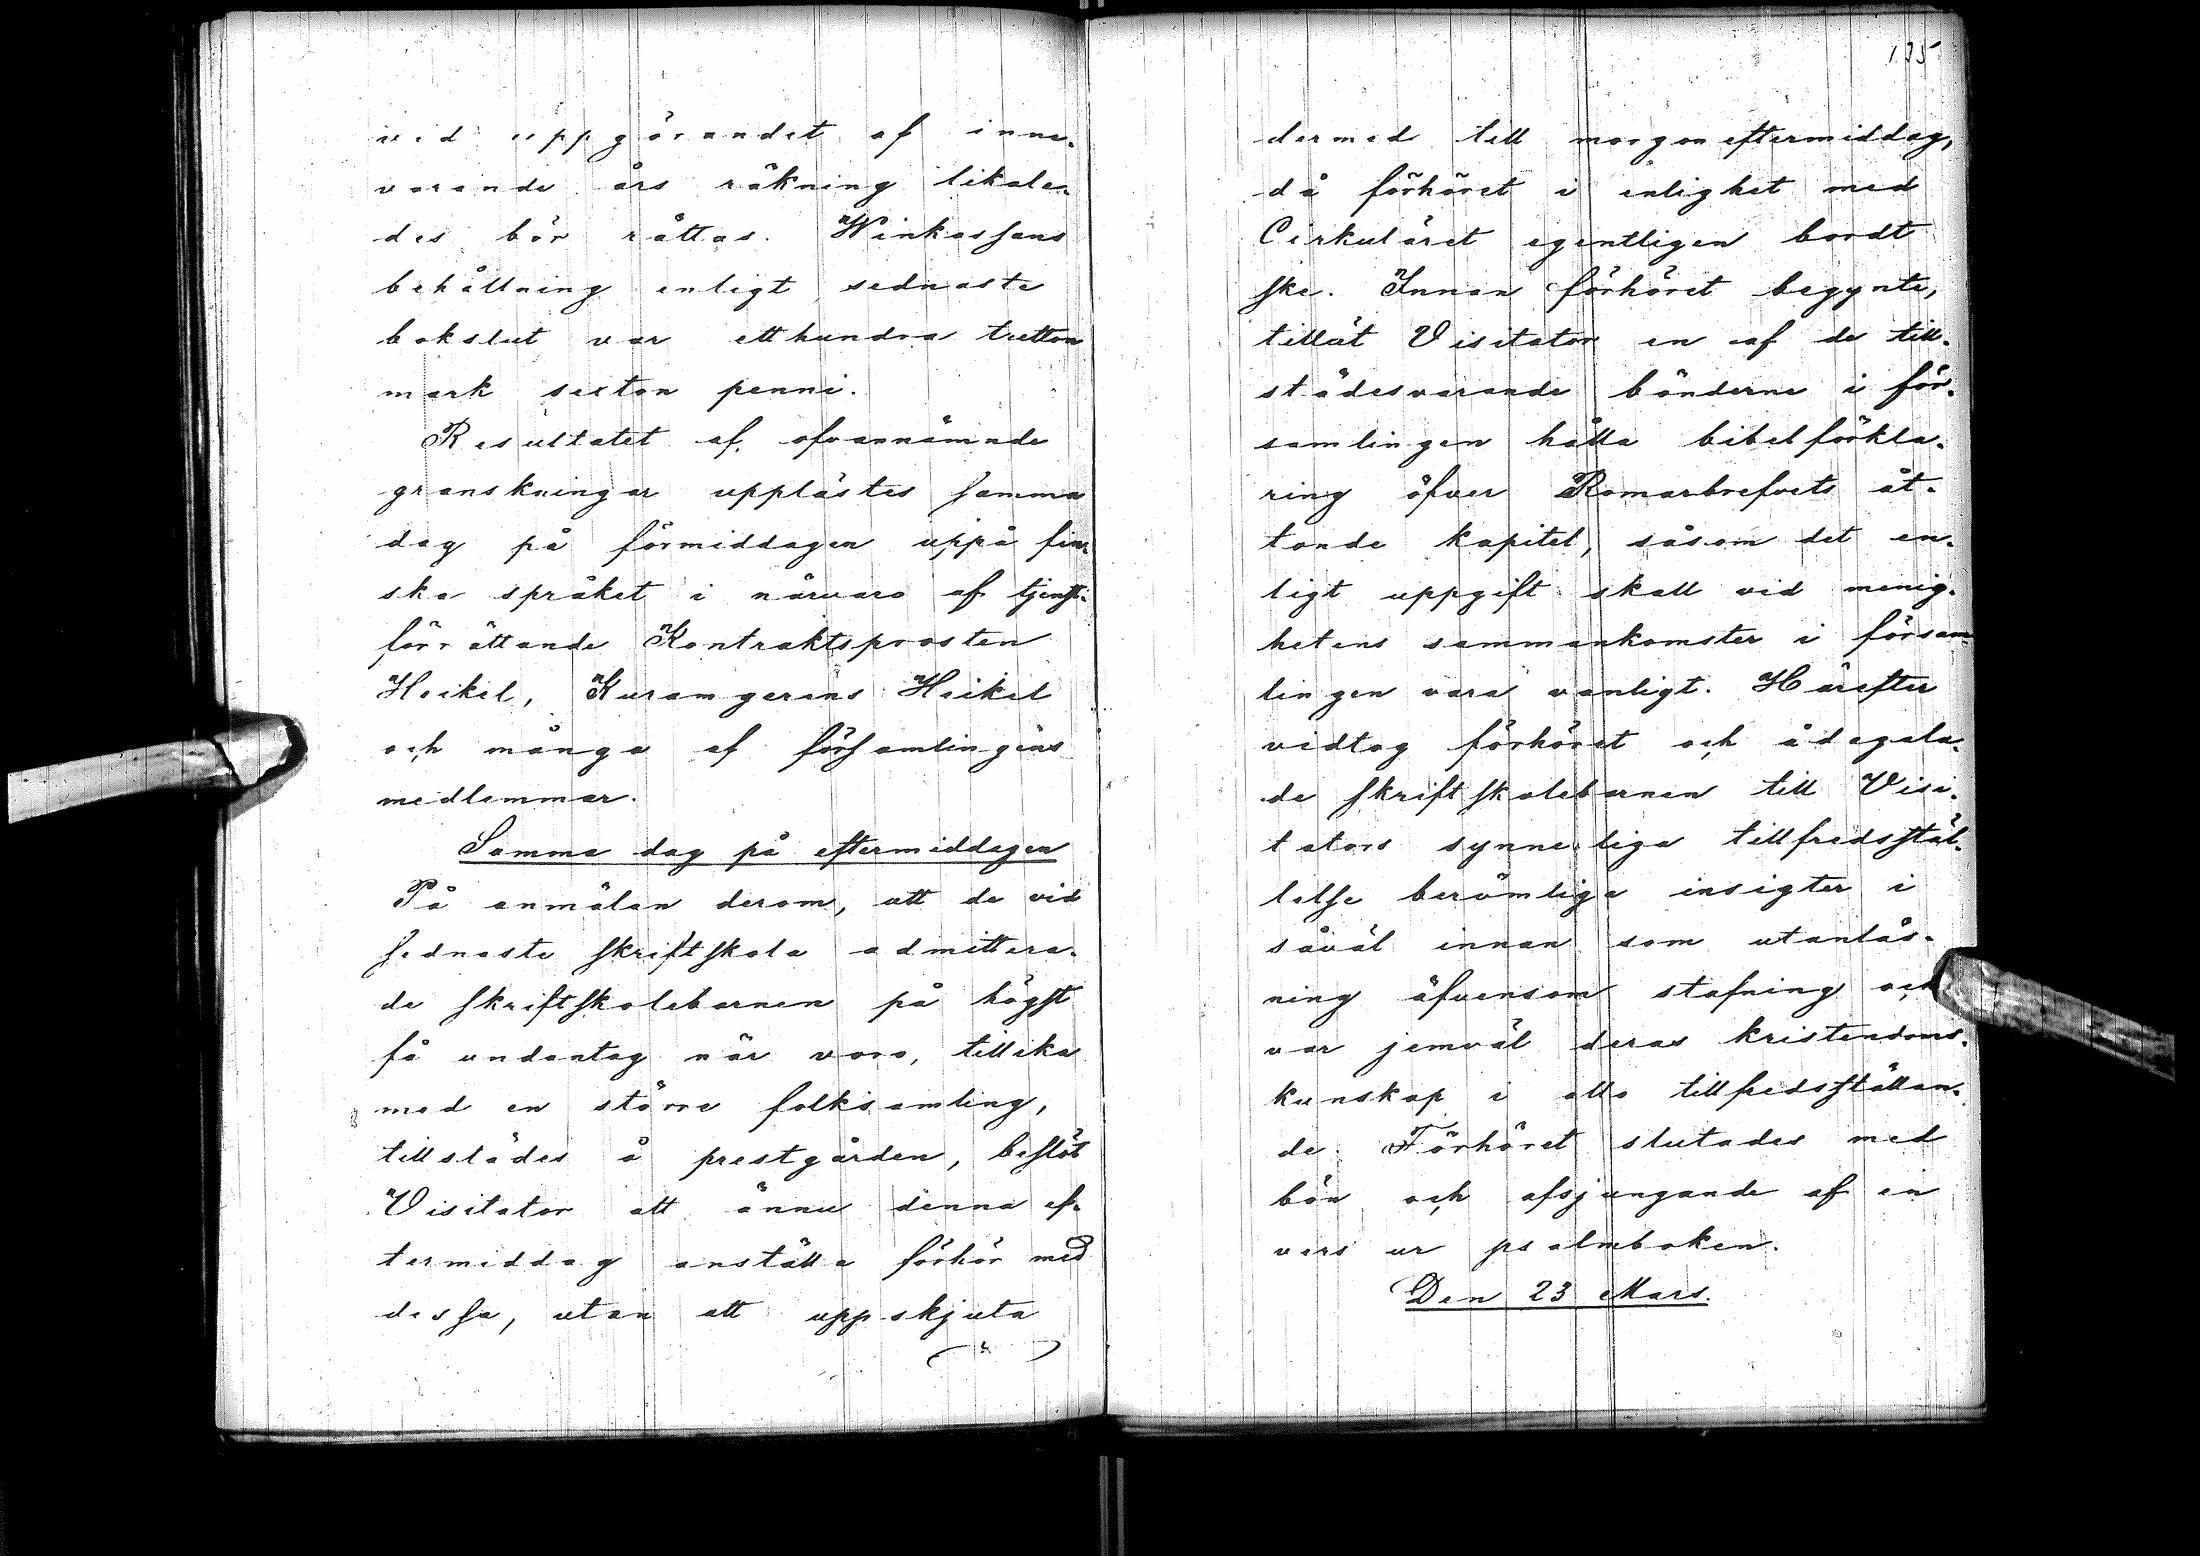 vid uppgörandet af inne-
varande års räkning likale-
des bör rättas. Winkassans
behållning enligt sednaste
bokslut var etthundra tretton
mark sexton penni.
Resultatet af ofvannämnde
granskningar upplästes samma
dag på förmiddagen uppå fin-
ska språket i närvaro af tjenst-
förrättande Kontraktsprosten
Heikel, Kuramgerens Heikel
och många af församlingens
medlemmar.
Samma dag på eftermiddagen
På anmälan derom, att de vid
sednaste skriftskola admittera-
de skriftskolebarnen på högst
få undantag när voro, tillika
med en större folksamling,
tillstädes å prestgården, beslöt
Visitator att ännu denna ef-
termiddag anställa förhör med
dessa, utan att uppskjuta
135
dermed till morgon eftermiddag,
då förhöret i enlighet med
Cirkuläret egentligen bordt
ske. Innan förhöret begynte,
tillät Visitator en af de till-
städesvarande bönderne i för-
samlingen hålla bibelförkla-
ring öfver Romarbrefvets åt-
tonde kapitel, såsom det en-
ligt uppgift skall vid menig-
hetens sammankomster i försam-
lingen vara vanligt. Härefter
vidtog förhöret och ådagala-
de skriftskolebarnen till Visi-
tators synnerliga tillfredsstäl-
lelse berömliga insigter i
såväl innan som utanläs-
ning äfvensom stafning och
var jemväl deras kristendoms-
kunskap i allo tillfredsställan-
de. Förhöret slutades med
bön och afsjungande af en
vers ur psalmboken.
Den 23 Mars.